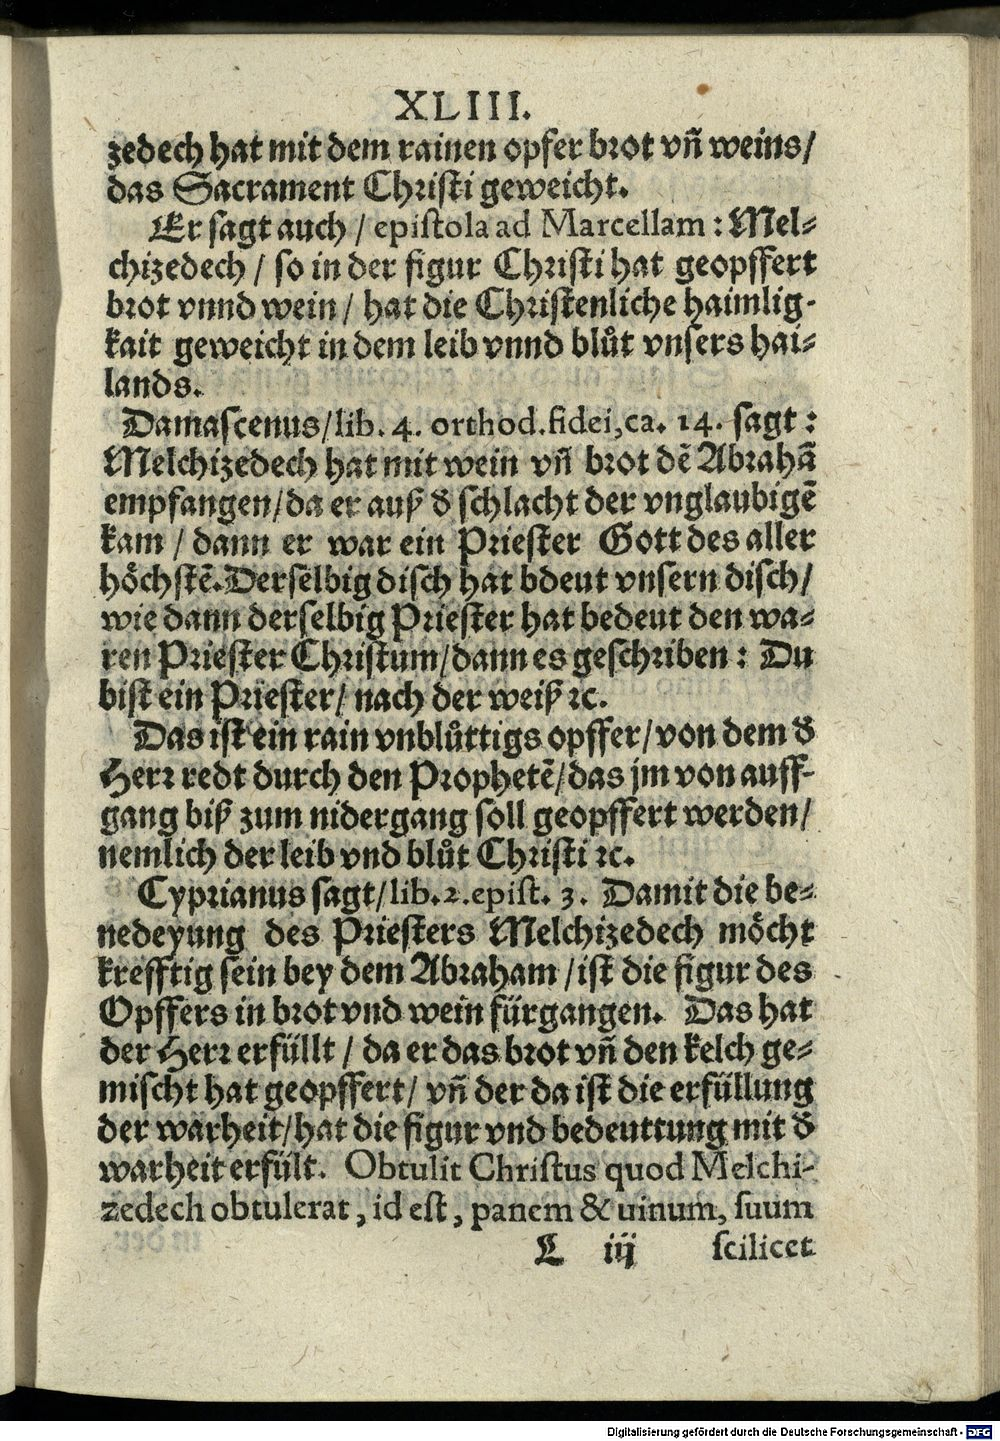 XLIII.
zedech hat mit dem rainen opfer brot vñ weins/
das Sacrament Christi geweicht.
Er sagt auch / epistola ad Marcellam : Mel⸗
chizedech / so in der figur Christi hat geopffert
brot vnnd wein / hat die Christenliche haimlig⸗
kait geweicht in dem leib vnnd blůt vnsers hai⸗
lands.
Damascenus/lib. 4. orthod.fidei,ca. 14. sagt :
Melchizedech hat mit wein vñ brot dẽ Abrahã
empfangen/da er auß d̕ schlacht der vnglaubigẽ
kam / dann er war ein Priester Gott des aller
höchstẽ.Derselbig disch hat bdeut vnsern disch/
wie dann derselbig Priester hat bedeut den wa⸗
ren Priester Christum/dann es geschriben : Du
bist ein Priester/ nach der weiß ꝛc.
Das ist ein rain vnblůttigs opffer/von dem d̕
Herr redt durch den Prophetẽ/das jm von auff⸗
gang biß zum nidergang soll geopffert werden/
nemlich der leib vnd blůt Christi ꝛc.
Cyprianus sagt/lib.2.epist. 3. Damit die be⸗
nedeyung des Priesters Melchizedech möcht
krefftig sein bey dem Abraham /ist die figur des
Opffers in brot vnd wein fürgangen. Das hat
der Herr erfüllt / da er das brot vñ den kelch ge⸗
mischt hat geopffert/ vñ der da ist die erfüllung
der warheit/hat die figur vnd bedeuttung mit d̕
warheit erfült. Obtulit Christus quod Melchi-
zedech obtulerat, id est, panem & uinum, suum
L iij scilicet
Digitalisierung gefördert durch die Deutsche Forschungsgemeinschaft - DFG